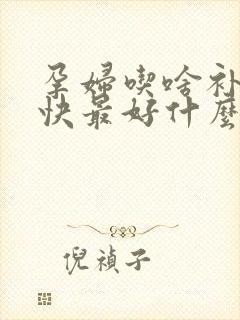 孕婦喫啥补
快最好什麼
倪禎子